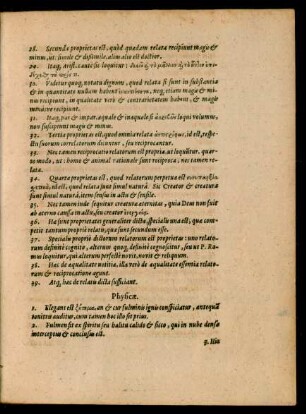 28. Secunda proprietas est, quòd quædam relata recipiunt magis &
minus, ut: similis & dissimile, alia aliis est doctior.
29. Itaq; arist. caute sic loquitur:
30. Videtur quoq; notatu dignum, quod relata si sunt in substantia
& in quantitate nullum habent neq; etiam magis & mi-
nus recipiunt, in qualitate verò & contrarietatem habent, & magis
minusve recipiunt.
31. Itaq; par & impar, aequale & inaequale si volumus,
non suscipiunt magis & minus.
32. Tertia proprietas est, quòd omnia relata id est, respe-
ctu suorum correlatorum dicuntur, seu reciprocantur.
33. Nec tamen reciproca relatorum est propria, ut loquuntur, quar-
to modo, ut: homo & animal rationale sunt reciproca, nec tamen re-
lata.
34. Quarta proprietas est, quod relatorum perpetua est
id est, relata sunt simul naturâ. Sic Creator & creatura
sunt simul naturâ, item sensus in actu & sensile.
35. Nec tamen inde sequitur creaturas æternitas, quia Deus non fuit
ab æterno causa in actu, sive creator
36. Hæ sunt proprietates generaliter dictæ, specialis una est, quæ com-
petit tantum propriè relatis, quæ sunt secundum esse.
37. Specialis propria dictorum relatorum est proprietas, uno relato-
rum definitè cognito, alterum quoq; definitè cognoscitur, seu ut P. Ra-
mus loquitur, alterius perfectè norit, noverit & reliquum.
38. Hæc de æqualitate notitiæ, illa verò de æqualitate essentiæ relato-
rum & reciprocatione agunt.
39. Atq; hæc de relatis dicta sufficiant.
Physicæ.
1. Elegans est an & cur fulminis ignis conspiciatur, antequam
tonitru auditur, cum tamen hoc illo sit prius.
2. Fulmen fit ex spiritu seu halitu calido & sicco, qui in nube densa
interceptus & conclusus est.
3. Illa